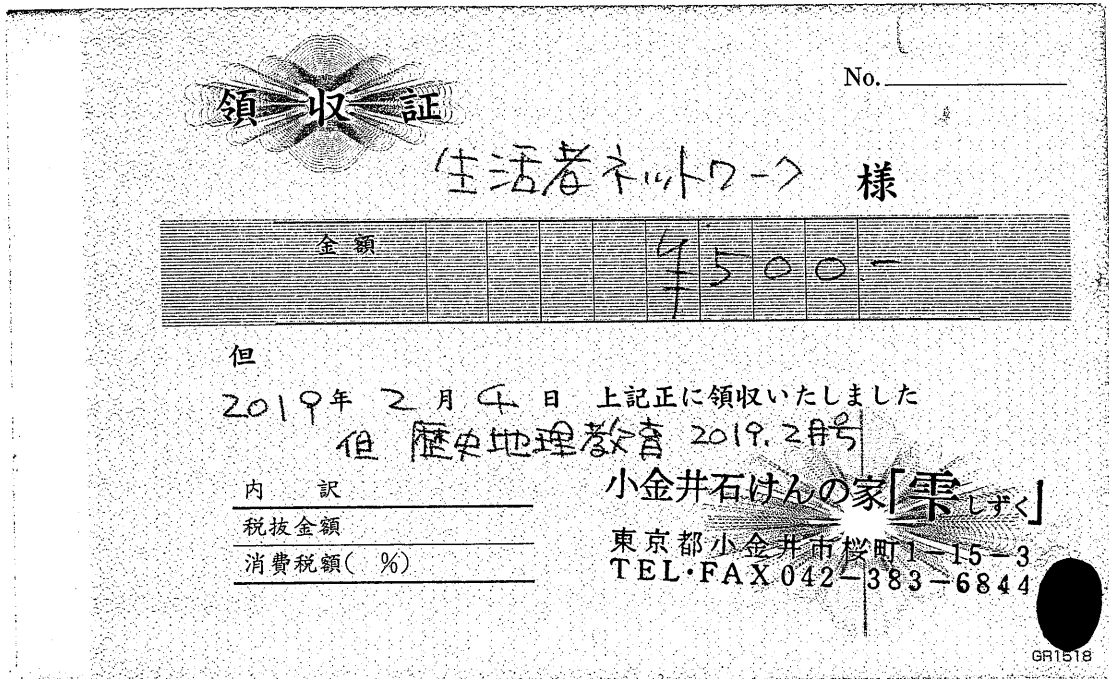 領収証
No.
生活者ネットワーク 様
金額 ¥500-
但
2019年 2月 4日 上記正に領収いたしました
但 歴史地理教育 2019.2月号
内訳
税抜金額
消費税額( %)
小金井石けんの家「雫しずく」
東京都小金井市桜町1-15-3
TEL・FAX 042-383-6844
GR1518